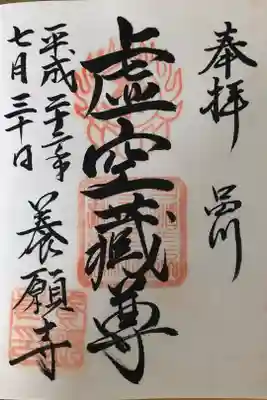 奉拝
品川
虚空藏尊
平成二十二年
七月三十日
養願寺